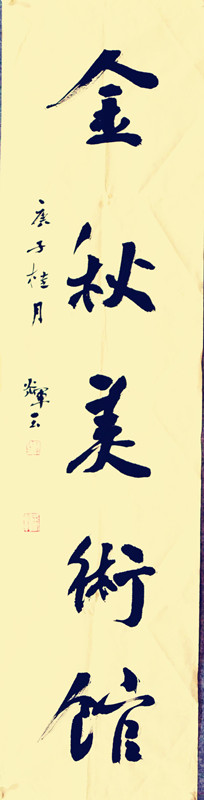 金秋美術館
庚子桂月
輝玉